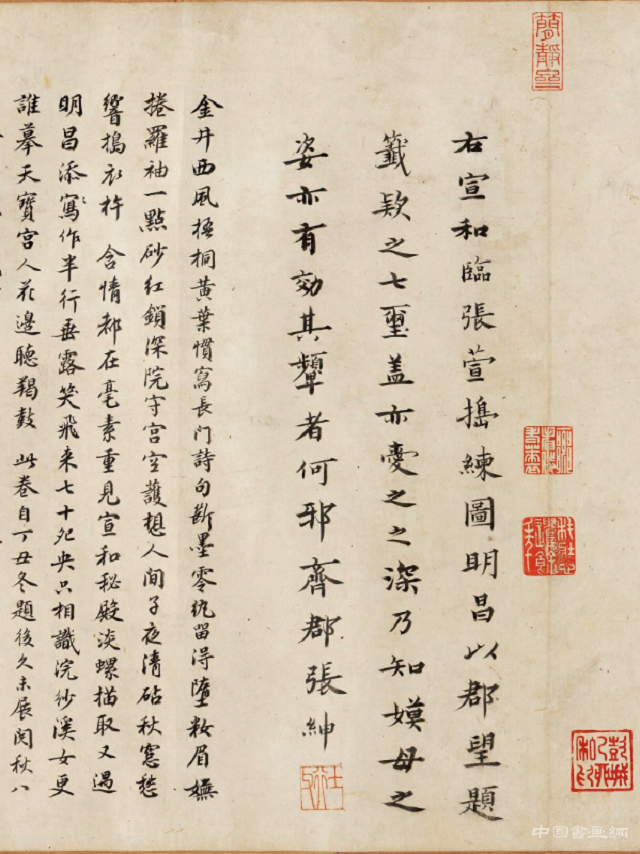 右宣和臨張萱搗練圖明昌以郡望題
籤欵之七璽盖亦愛之之深乃知嫫母之
姿亦有効其顰者何邪齊郡張紳
金井西風梧桐黃葉慣寫長门詩句斷墨零紈留得墮粧眉嫵
捲羅袖一點砂紅鎖深院守宮空護想人间子夜清砧秋窓愁
響搗衣杵 含情都在毫素重見宣和秘殿淡螺描取又遇
明昌添寫作半行垂露笑飛来七十夗央只相識浣紗溪女更
誰摹天寶宮人花邊聽羯鼓 此卷自丁丑冬題後久未展閱秋八
簡靜齋
中国书画网